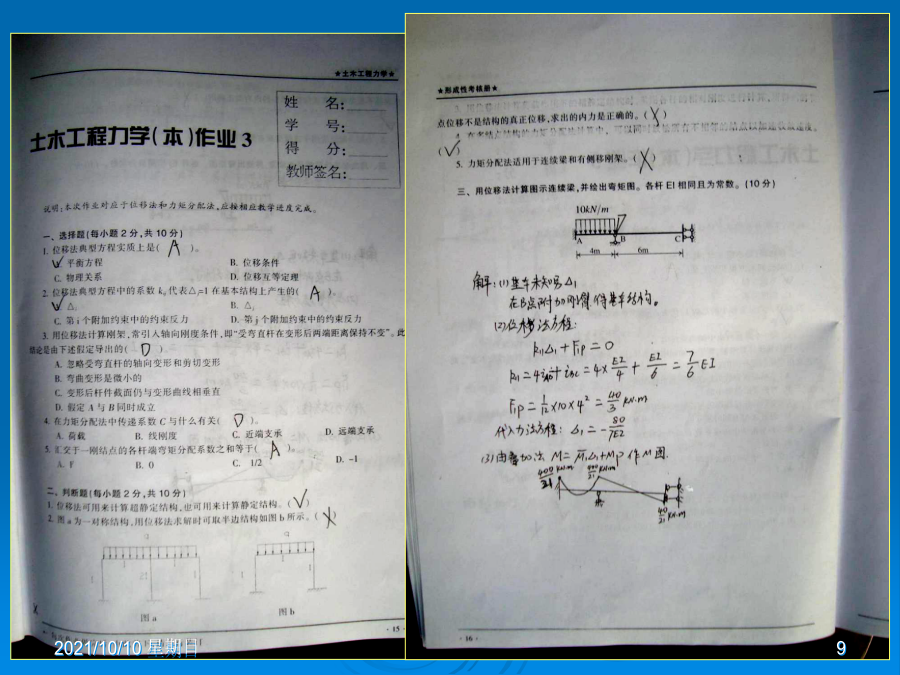 ★土木工程力学★
姓 名:
学 号:
得 分:
教师签名:
土木工程力学(本)作业 3
说明:本次作业对应于位移法和力矩分配法,应按相应教学进度完成。
一、选择题(每小题 2 分,共 10 分)
1. 位移法典型方程实质上是( A )。
A. 平衡方程 B. 位移条件
C. 物理关系 D. 位移互等定理
2. 位移法典型方程中的系数 kij 代表△j=1 在基本结构上产生的( A )
△i B. △j
C. 第 i 个附加约束中的约束反力 D. 第 j 个附加约束中的约束反力
3. 用位移法计算刚架,常引入轴向刚度条件,即“受弯直杆在变形后两端距离保持不变”。此
结论是由下述假定导出的( D )
A. 忽略受弯直杆的轴向变形和剪切变形
B. 弯曲变形是微小的
C. 变形后杆件截面仍与变形曲线相垂直
D. 假定 A 与 B 同时成立
4. 在力矩分配法中传递系数 C 与什么有关( D )。
A. 荷载 B. 线刚度 C. 近端支承 D. 远端支承
5. 汇交于一刚结点的各杆端弯矩分配系数之和等于( A )。
B. 0 C. 1/2 D. -1
二、判断题(每小题 2 分,共 10 分)
1. 位移法可用来计算超静定结构,也可用来计算静定结构。( √ )
2. 图 a 为一对称结构,用位移法求解时可取半边结构如图 b 所示。( X )
q q
图 a 图 b
· 15 ·
★形成性考核册★
点位移不是结构的真正位移,求出的内力是正确的。( X )
( √ )
5. 力矩分配法适用于连续梁和有侧移刚架。( X )
三、用位移法计算图示连续梁,并绘出弯矩图。各杆 EI 相同且为常数。(10 分)
10kN/m
A B C
4m 6m
解:(1)基本未知与△1
在B点附加刚臂得基本结构。
(2)位移法方程:
k11△1+F1P=0
k11=4iAB+iBC=4×EI/4+EI/6=7/6EI
F1P=1/12×10×4²=40/3 kN.m
代入力法方程: △1=-80/7EI
(3)由叠加法 M=M̄1△1+MP 作M图.
400/21 kN.m kN.m
40/21 kN.m
· 16 ·
2021/10/10 星期日
9